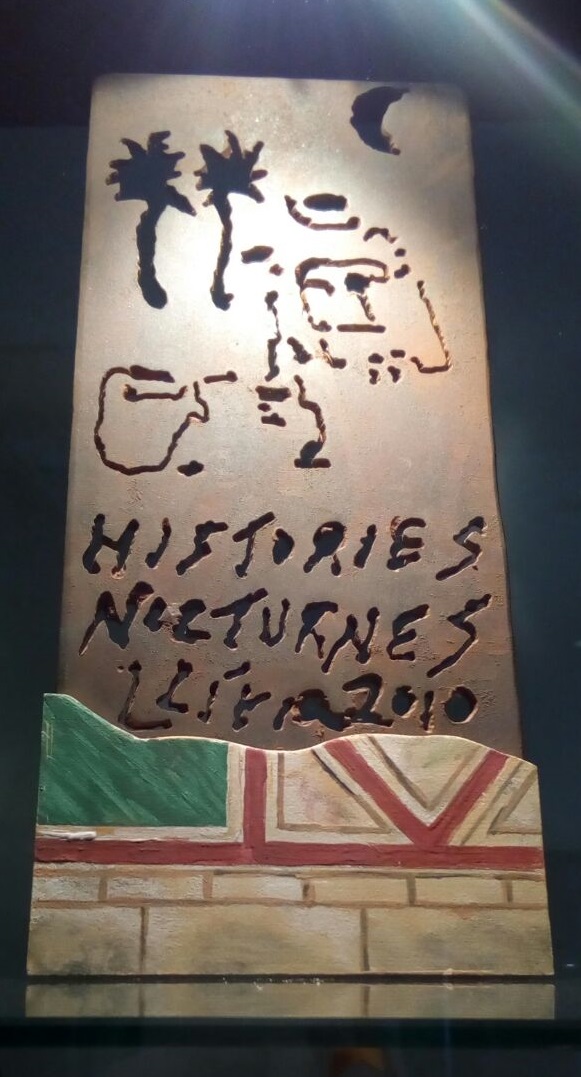 HISTORIES
NOCTURNES
Llíria 2010